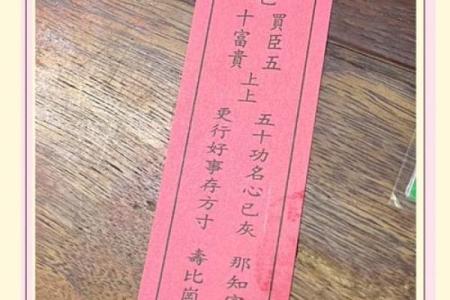 買臣五
十富貴
上上
五十功名心已灰 那知
更行好事存方寸 壽比